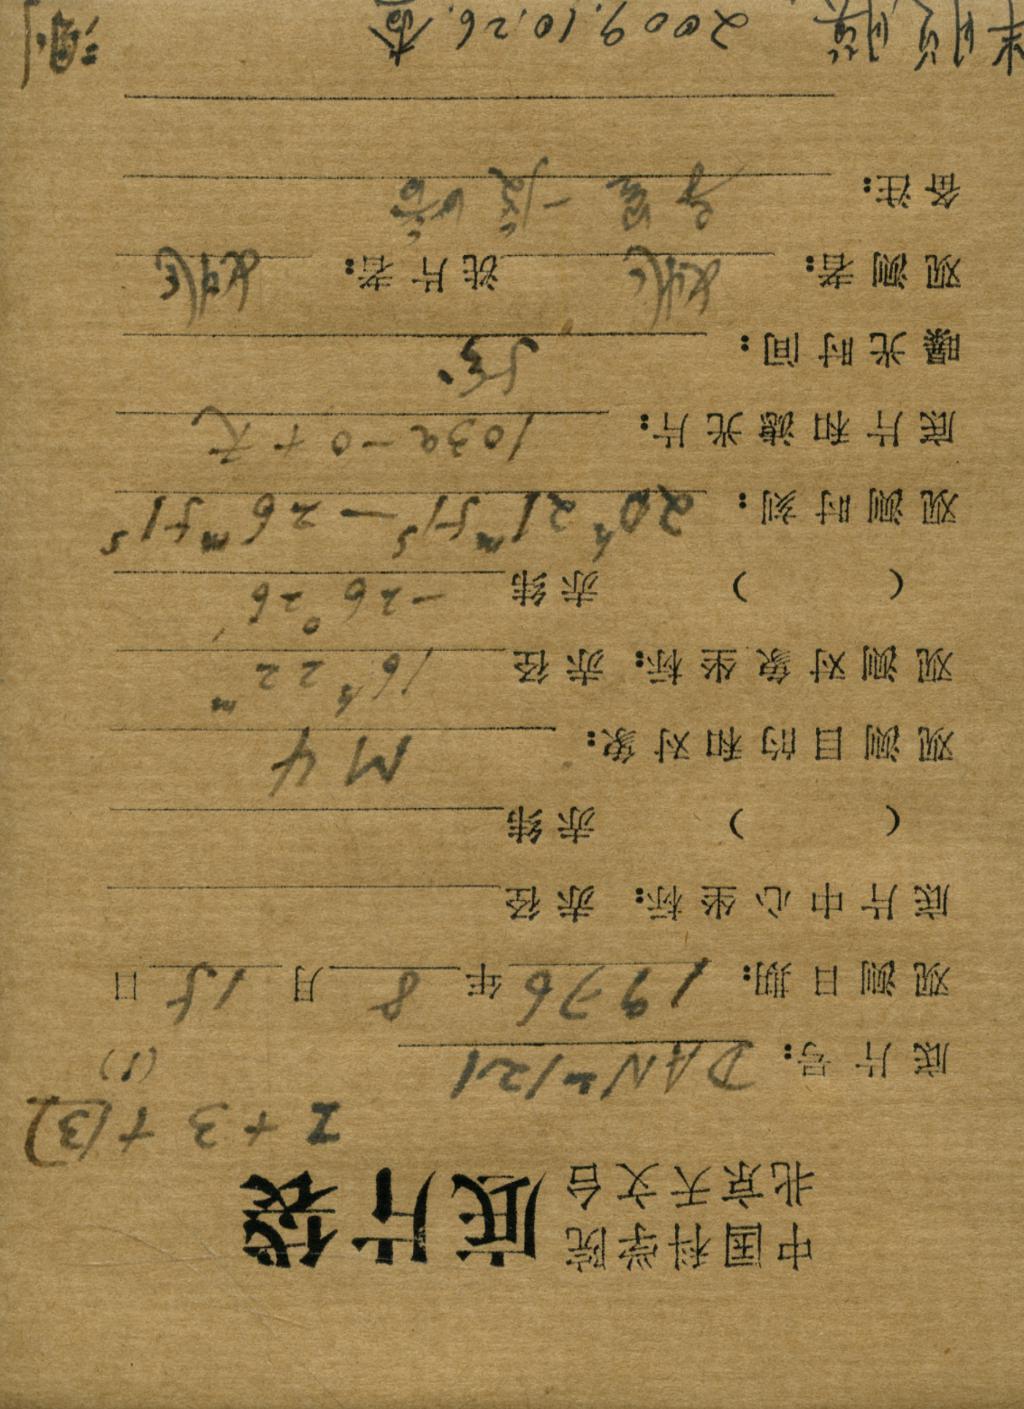 中国科学院
北京天文台
底片袋
2+3+(3)
(1)
底片号: DAN-121
观测日期: 1976年8月15日
底片中心坐标: 赤径
( ) 赤纬
观测目的和对象: M4
观测对象坐标: 赤径 16h22m
( ) 赤纬 -26°26′
观测时刻: 20h21m51s—26m51s
底片和滤光片: 103a-0+无
曝光时间: 5分
观测者: 洗片者:
备注:
2009.10.26.查